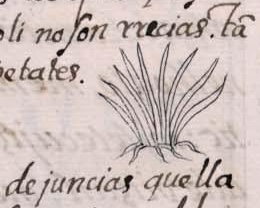 oli no son rrecias. tā
petates.
de juncias que lla